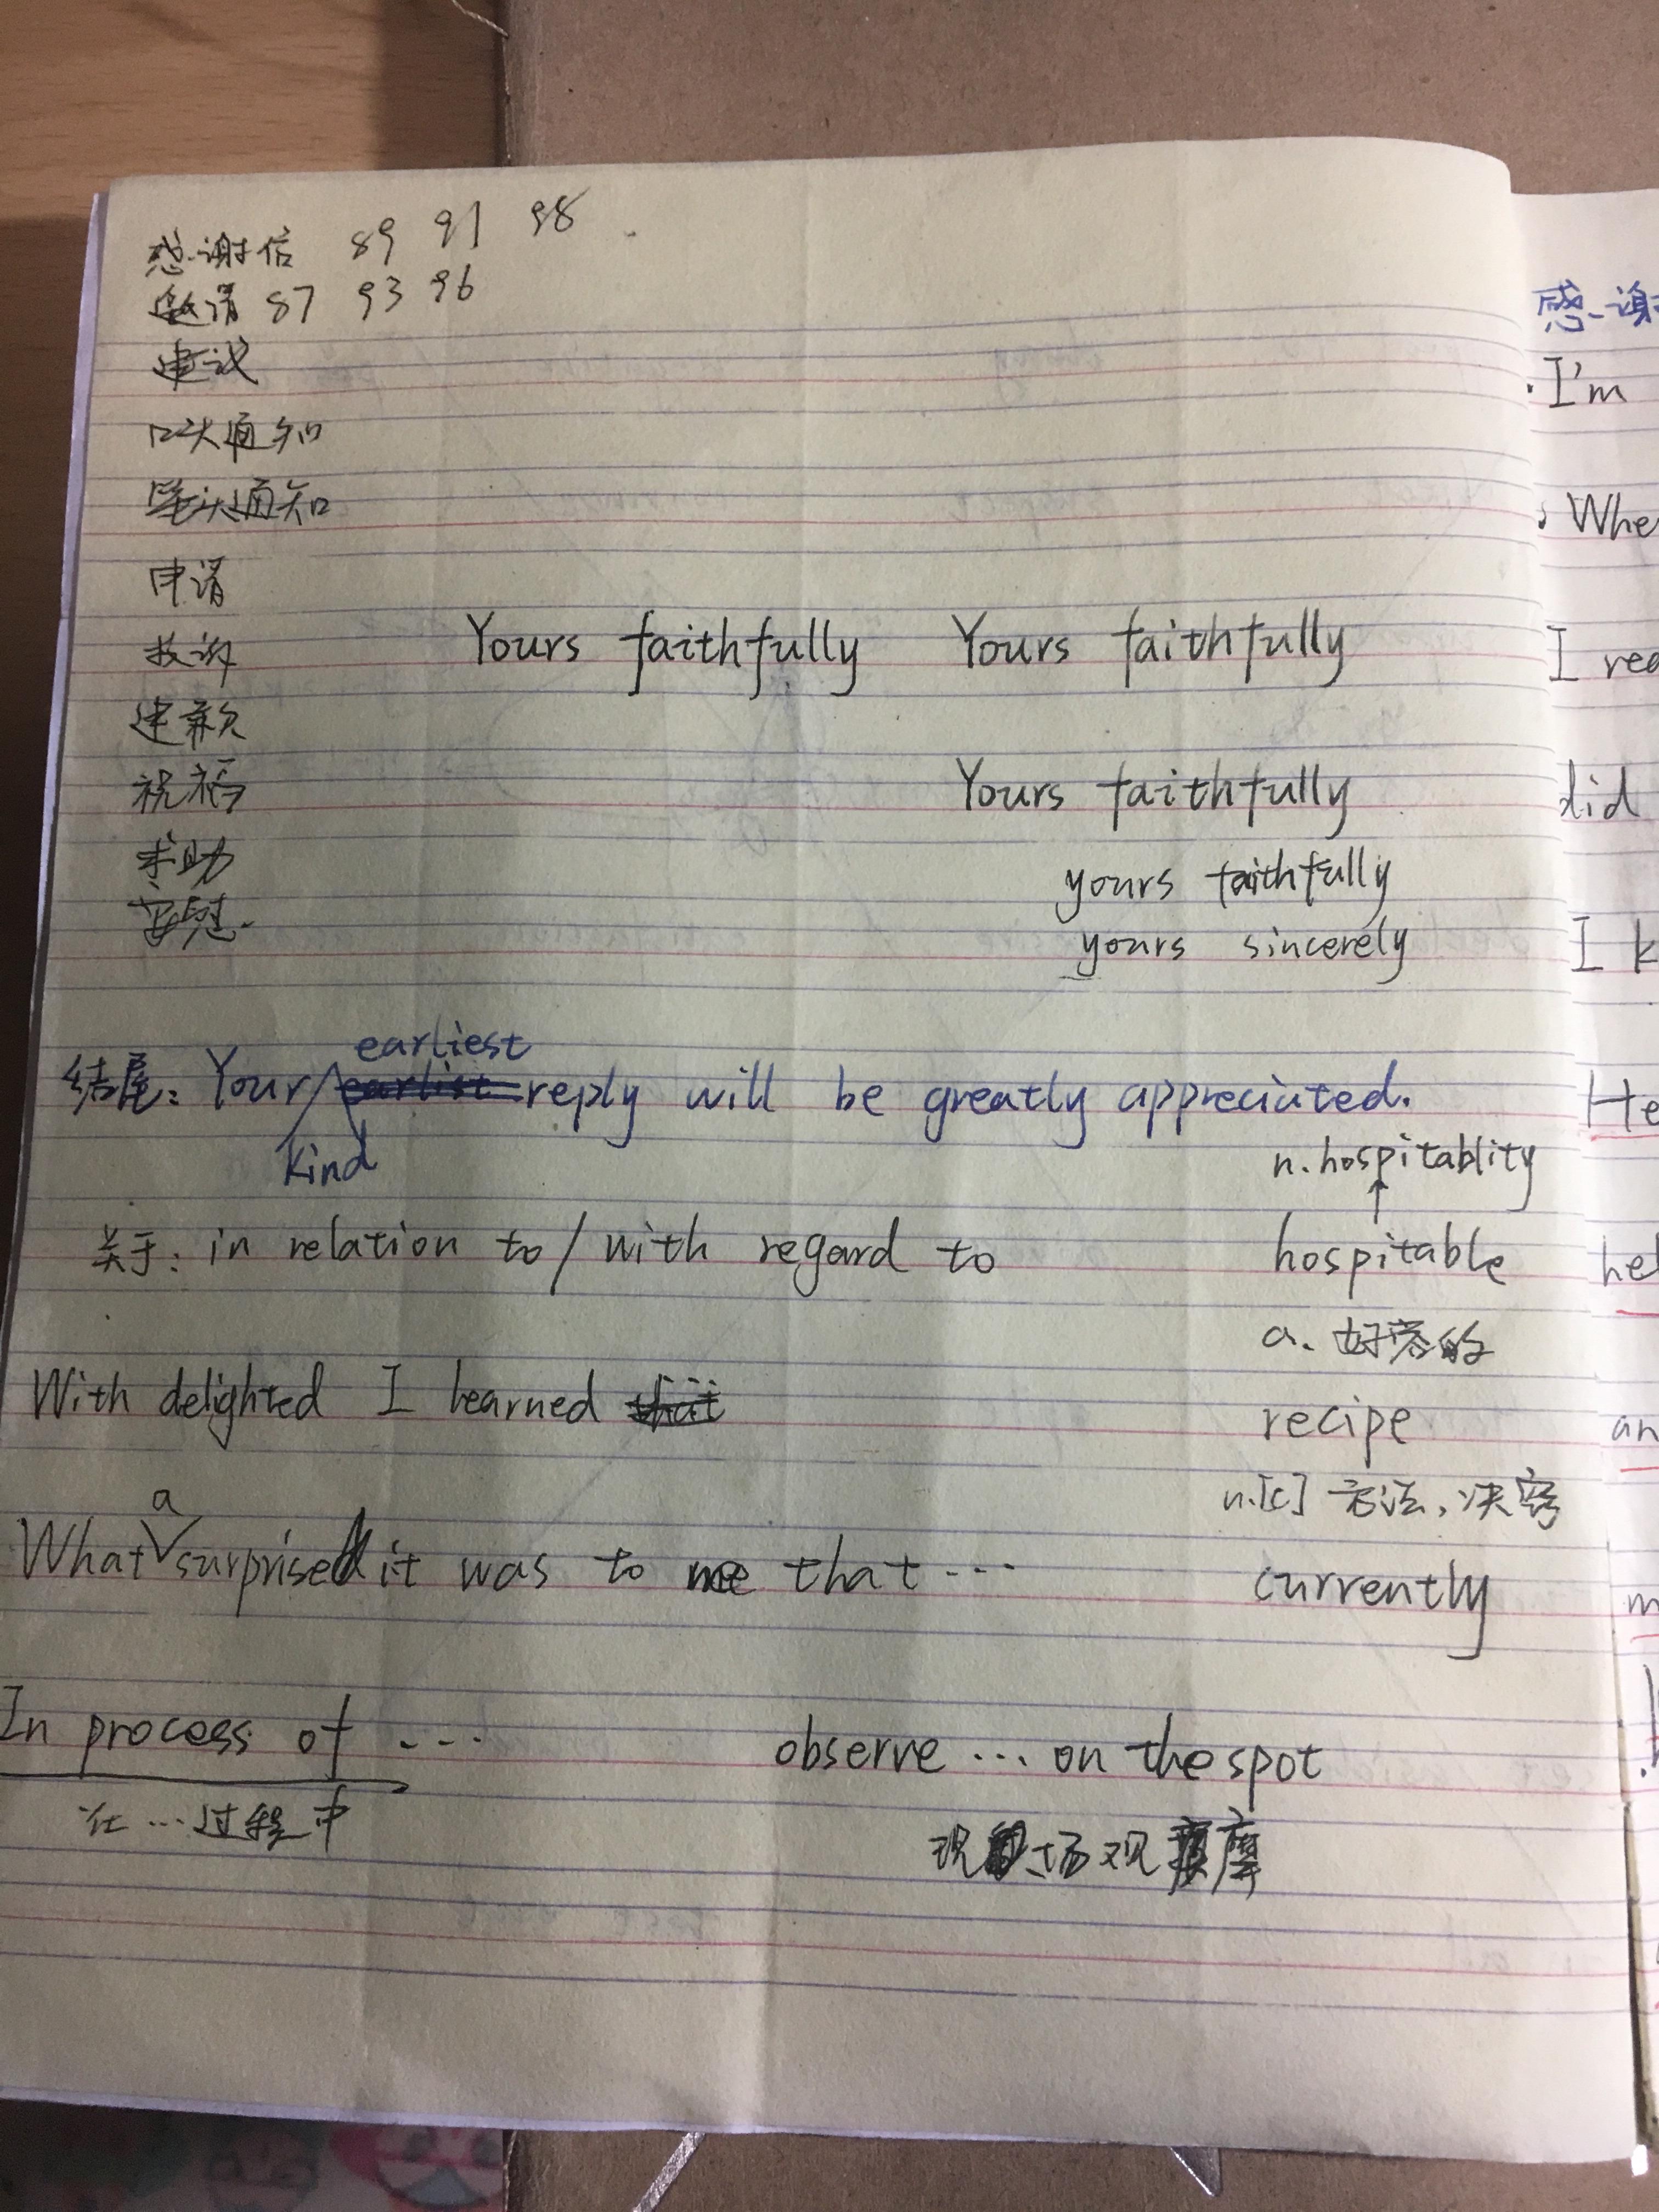 感谢信 89 91 98
邀请 87 93 96
建议
口头通知
笔头通知
申请
投诉
道歉
祝福
求助
安慰.
Yours faithfully Yours faithfully
Yours faithfully
yours faithfully
yours sincerely
earliest
结尾: Your reply will be greatly appreciated.
kind
n. hospitablity
关于: in relation to / with regard to
hospitable
a. 好客的
With delighted I learned that
recipe
n.[c] 方法, 决窍
a
What surprised it was to me that ...
currently
In process of ...
在 ... 过程中
observe ... on the spot
现场观摩
感谢
· I'm
I
did
I
He